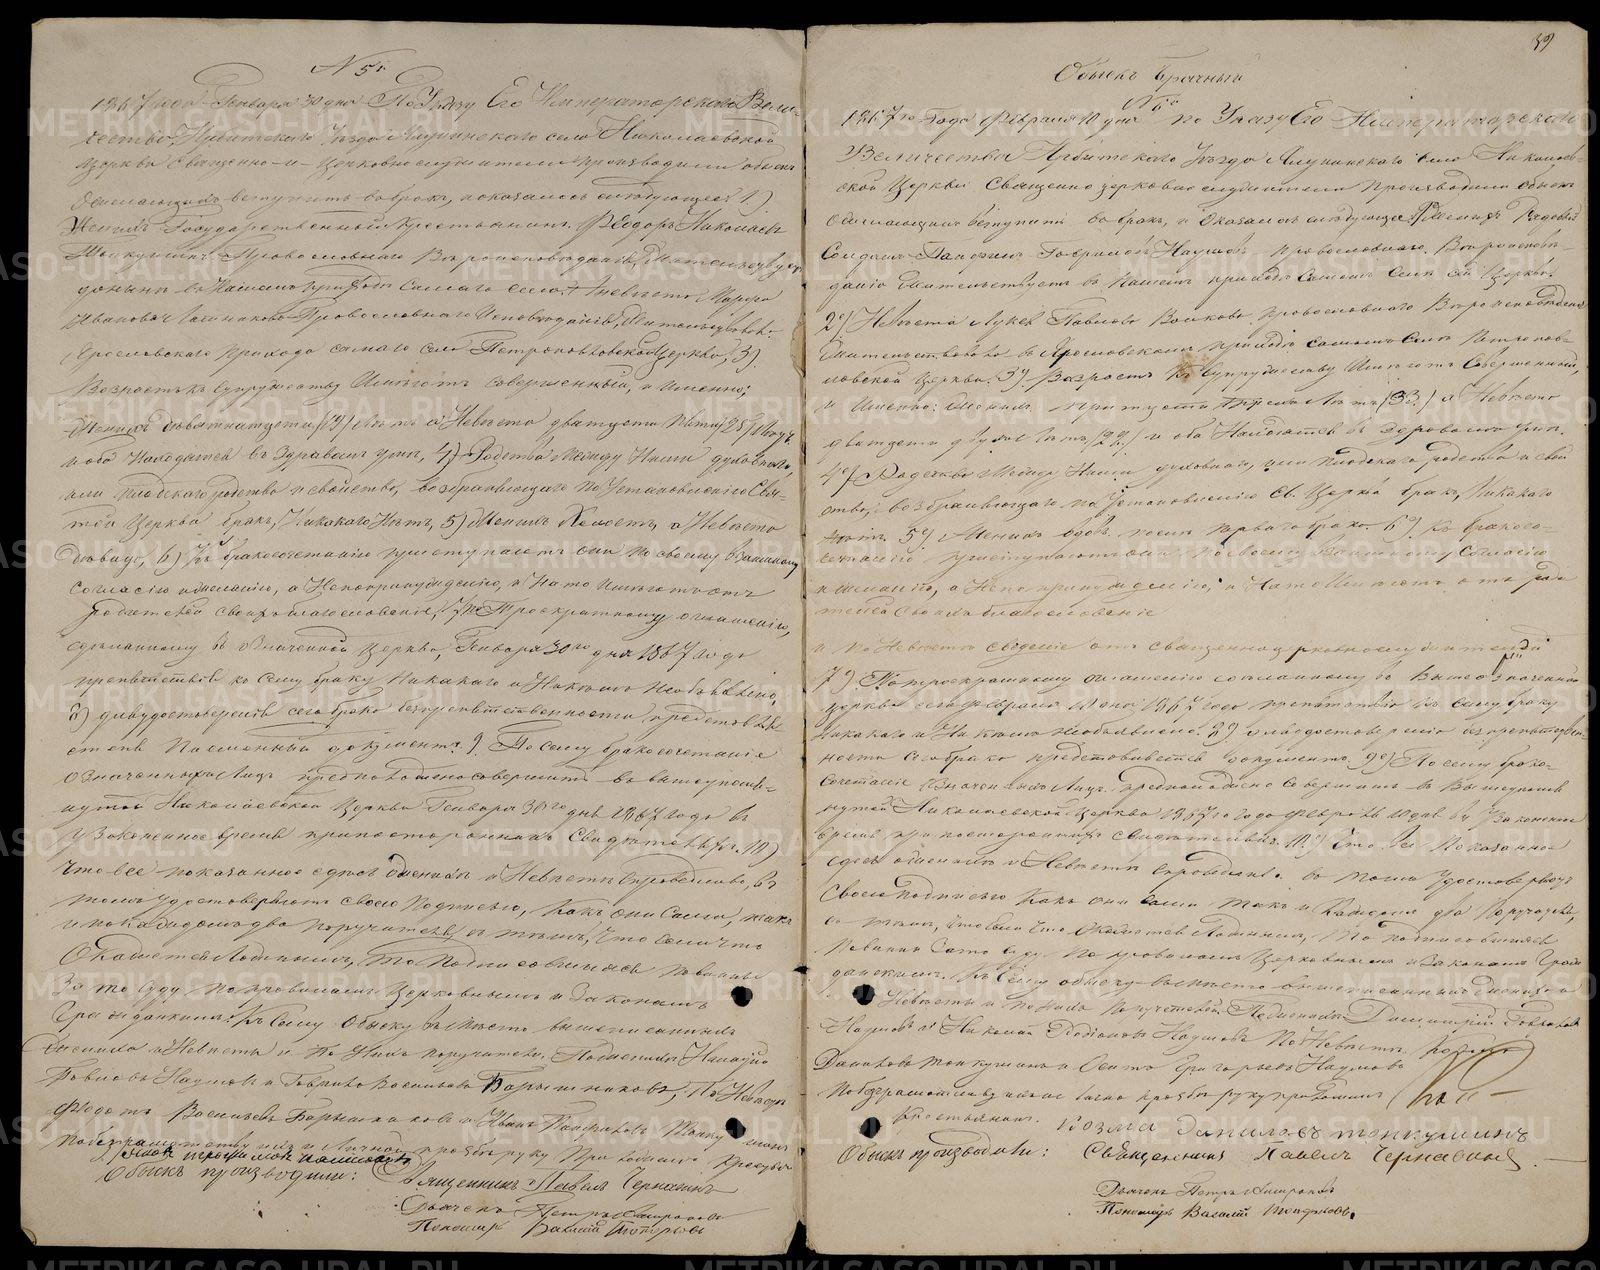 № 5й
1867 года Генваря 30 дня По Указу Его Императорскаго Вели-
чества, Ирбитскаго Уезда села Николаевской
Церкви Священно-и-Церковнослужители производили обыск
о желающих вступить в брак, и оказалось следующее: 1)
Жених Государственный крестьянин Феодор Николаев
Топкушин Православнаго Вероисповедания, жительствует
доныне в Нашем приходе самаго села, 2 Невеста Марфа
Иванова Православнаго Исповедания, жительствовала
прихода самаго села Петропавловской Церкви, 3)
Возраст к супружеству Имеют совершенный, и именно;
Жених девятнатцети (19) лет а Невеста дватцети пяти (25)
и оба Находятся в здравом уме, 4) Родства Между Ними духовнаго,
или плодскаго родства и свойства, возбраняющаго по Установлению Свя-
той Церкви брак, Никакаго Нет, 5) Жених Холост, а Невеста
девица, 6) К бракосочетанию приступают они по своему взаимному
согласию и желанию, а Непопринуждению, и На то имеют от
родителей своих благословение, 7) по Троекратному оглашению,
сделанному в означенной Церкви, Генваря 30го дня 1867 года
препятствия к сему браку Никакаго и Никем Необъявлено,
8) для удостоверения сего брака безпрепятственности представля
ется Письменный документ. 9) По сему бракосочетание
означенных Лиц предположено совершить в вышеупомя-
нутой Николаевской Церкви Генваря 30го дня 1867 года в
узаконенное время при посторонних Свидетелях. 10)
Что все показанное здесь о жених и Невесте Справедливо, в
том удостоверяют своею Подписью, Как они Сами, так
и по каждому два поручителя, с тем, что если что
Окажется Ложным, то Подписавшиеся повинны
За то суду по правилам Церковным и Законам
Гражданским. К Сему Обыску вместо вышеписанных
жениха и Невесты и по Них поручителей, По жених
Павлов Наумов и Гаврило Васильев Барышников, По Невесте
Федот Васильев Барышников и Иван Топкушин
по безграмотству их и Личной просьбе руку Приложил Крестьянин
Обыск производили: Священник Павел Чернавин
Дьячек Петр
Пономарь Василий Топорков
39
Обыск Брачный
№ 6й
1867го Года Февраля 10 дня по Указу Его Императорскаго
Величества Ирбитскаго Уезда села Николаев-
ской Церкви Священно церковнослужители Производили обыск
о желающих вступить в брак, и Оказалось следующее: Жених Рядовый
Солдат Гаврилов Наумов православнаго Вероисповѣ-
дания Жительствует в Нашем приходе Самом Селе сей Церкви.
2е) Невеста Лукея Павлова Волкова православнаго Вероисповедания
Жительствовала в приходе самом селе Петропав-
ловской Церкви. 3е) Возраст к супружеству Имеют Совершенный,
и Именно: Жених трицети трех Лет (33) а Невеста
дватцети двух Лет (22) и оба Находятся в здравом уме.
4е) Родства Между Ними духовнаго, или плодскаго родства и свой
ства, возбраняющаго по Установлению Св. Церкви брак, Никакаго
нет. 5е) Жених вдов после перваго брака. 6е) К бракосо-
четанию приступают они по своему взаимному Согласию
и желанию, а Непопринуждению, и На то Имеют от роди
телей своих благословение
и по Невесте сведение от священноцерковнослужителей
7е) По троекратному оглашению сделанному в Вышеозначенной
церкви сего Февраля дня 1867 года препятствия к сему браку
Никакаго и Никем Необъявлено. 8е) для удостоверения безпрепятствен-
ности сего брака представляется документ. 9е) По сему брако-
сочетание означенных Лиц предположено Совершить в Вышеупомя
нутой Николаевской Церкви 1867го Года Февраля 10 дня в Узаконенное
время при посторонних Свидетелях. 10е) Что все Показанное
здесь о жених и Невесте справедливо. в том удостоверяют
Своею подписью Как они сами так и Каждаго два Поручителя,
с тем, что если что Окажется Ложным, То подписавшиеся
Повинны За то суду По правилам Церковным и Законам Граж
данским. К Сему обыску вместо вышеписанных жениха и
Невесты и по них Поручителей По жених Димитрий Гаврилов
Наумов и Николай Родионов Наумов По Невесте Козма
Данилов Топкушин и Осип Григорьев Наумов
По безграмотству их и лично просьбе руку приложил
Крестьянин Козма Данилов топкушин
Обыск производили: Священник Павел Чернавин
Дьячек Петр
Пономарь Василий Топорков.
METRIKI.GASO-URAL.RU